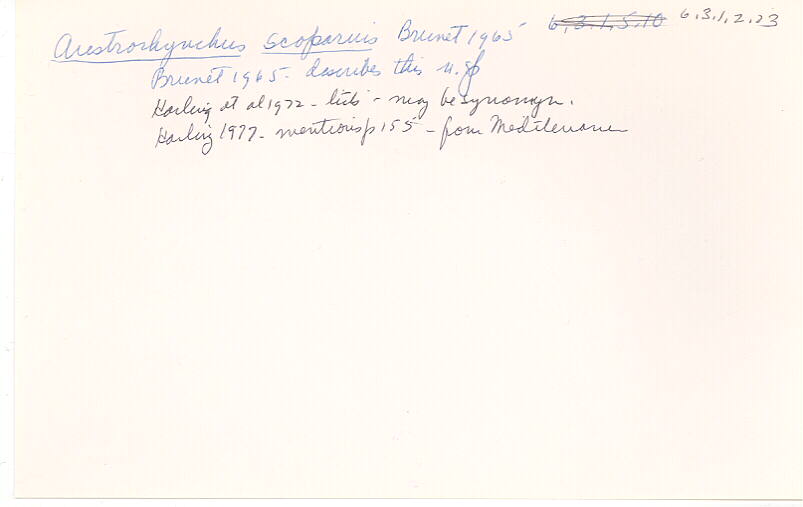 Austrorhynchus scoparius Brunet 1965 6.3.1.5.10 6.3.1.2.23
Brunet 1965 - describes this n. sp
Karling et al 1972 - lists - may be synonym.
Karling 1977 - mentions p 155 - from Mediterranean